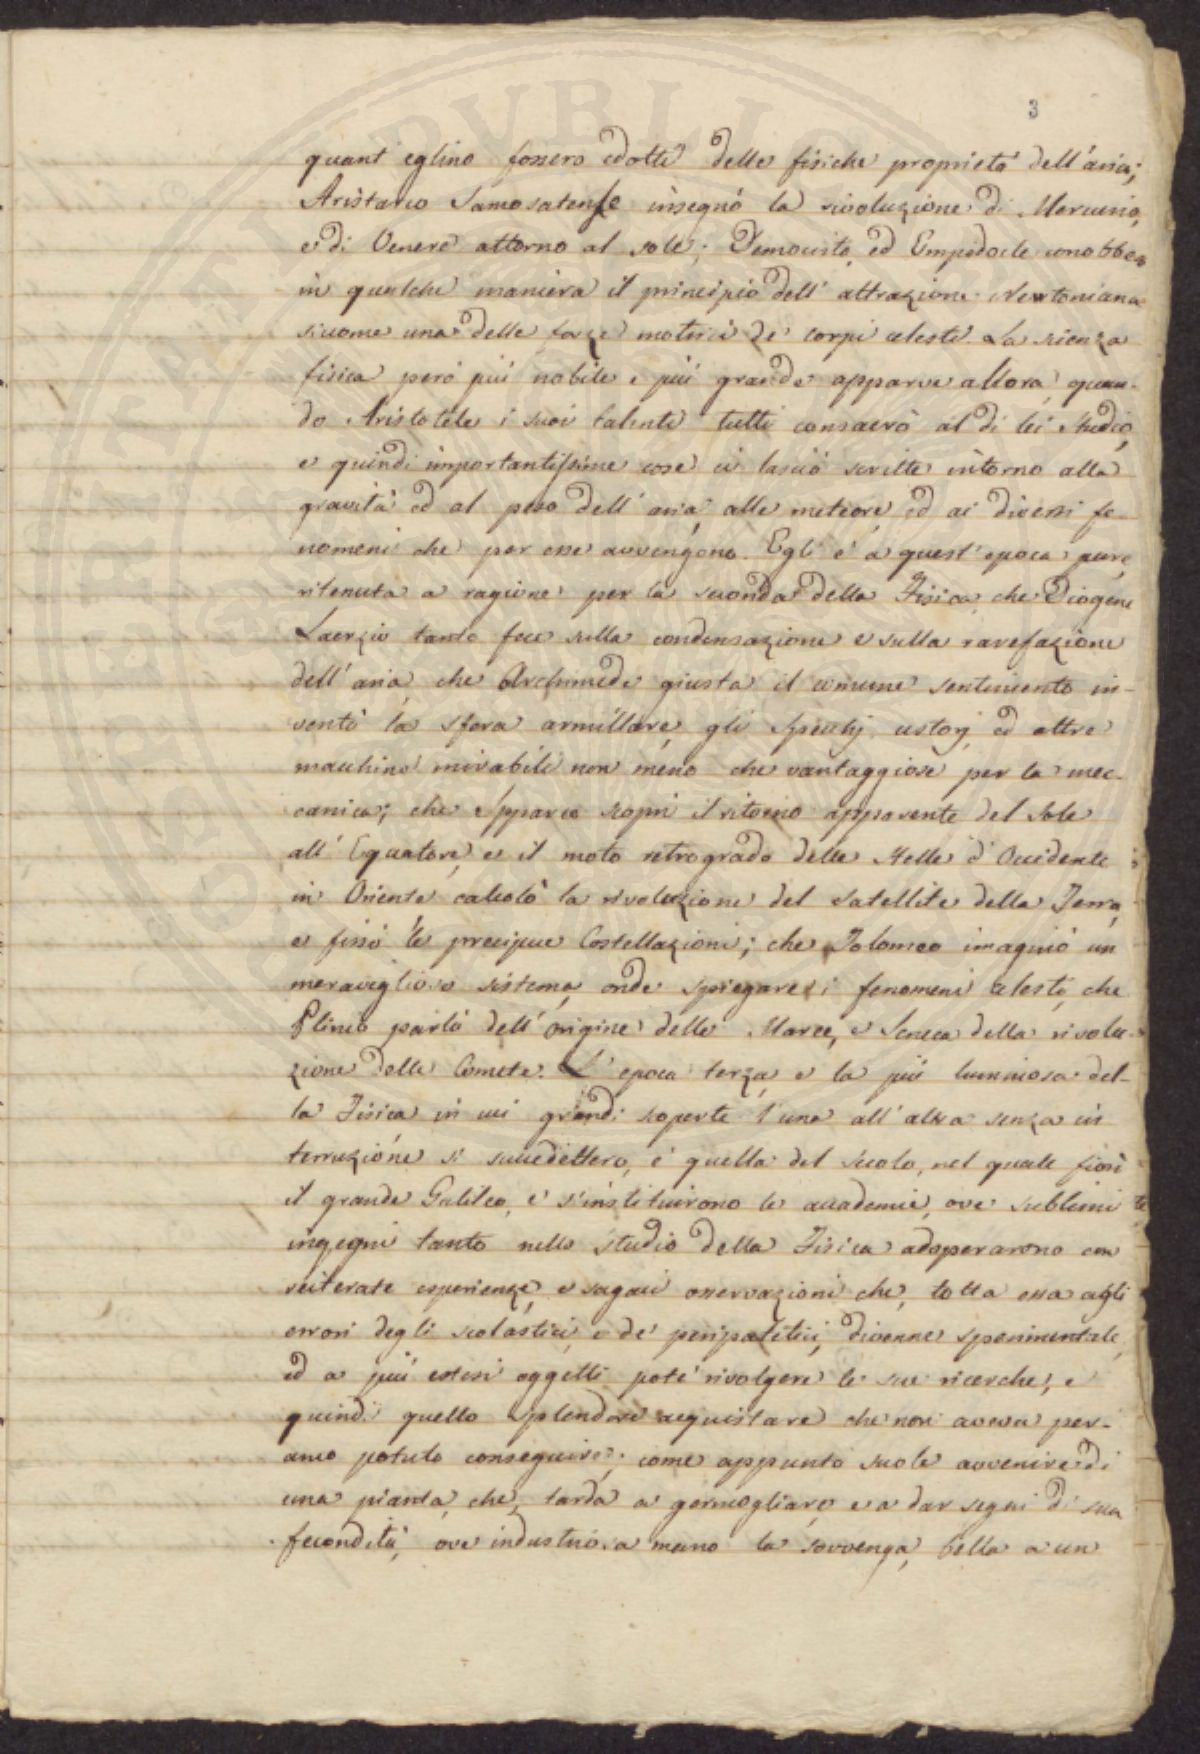 3
quant' eglino fossero edotti delle fisiche proprietà dell'aria;
Aristarco Samosatense insegnò la rivoluzione di Mercurio,
e di Venere attorno al sole; Democrito, ed Empedocle conobbero
in qualche maniera il principio dell' attrazione Newtoniana
siccome una delle forze motrici de' corpi celesti. La scienza
fisica però più nobile e più grande apparve allora, quan-
do Aristotele i suoi talenti tutti consacrò al di lei studio,
e quindi importantissime cose ci lasciò scritte intorno alla
gravità ed al peso dell' aria, alle meteore, ed ai diversi fe-
nomeni che per esse avvengono. Egli è a quest' epoca pure,
ritenuta a ragione per la seconda della Fisica, che Diogene
Laerzio tanto fece sulla condensazione e sulla rarefazione
dell' aria, che Archimede giusta il comune sentimento in-
ventò la sfera armillare, gli specchj ustorj, ed altre
macchine mirabili non meno che vantaggiose per la mec-
canica; che Ipparco scoprì il ritorno apparente del Sole
all' Equatore, e il moto retrogrado delle Stelle d' Occidente
in Oriente, calcolò la rivoluzione del satellite della Terra,
e fissò le precipue Costellazioni; che Tolomeo imaginò un
meraviglioso sistema, onde spiegare i fenomeni celesti, che
Plinio parlò dell' origine delle Maree, e Seneca della rivolu-
zione delle Comete. L' epoca terza, e la più luminosa del-
la Fisica in cui grandi scoperte l' una all' altra senza in
terruzióne si succedettero, è quella del secolo, nel quale fiorì
il grande Galileo, e s'instituirono le accademie, ove sublimi
ingegni tanto nello studio della Fisica adoperarono con
reiterate esperienze, e sagaci osservazioni che, tolta essa agli
errori degli scolastici, e de' peripatetici, divenne sperimentale,
ed a più estesi oggetti potè rivolgere le sue ricerche, e
quindi quello splendore acquistare che non aveva per-
anco potuto conseguire; come appunto suole avvenire di
una pianta, che, tarda a germogliare, e a dar segni di sua
fecondità, ove industriosa mano la sovvenga, bella a un